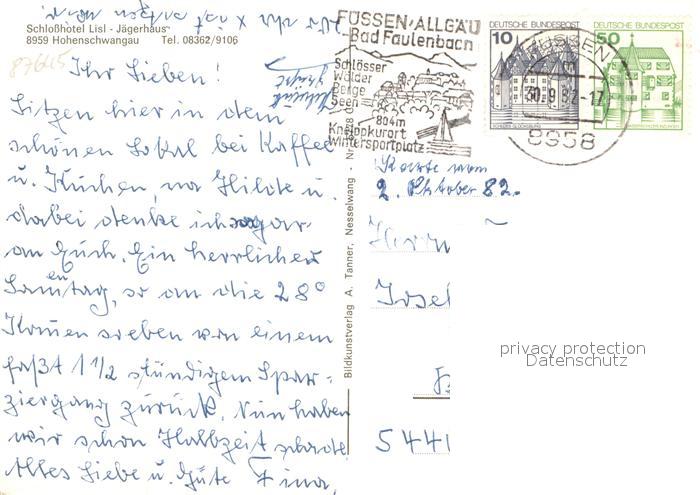 Schloßhotel Lisl - Jägerhaus
8959 Hohenschwangau Tel. 08362/9106
87645
Ihr Lieben!
Sitzen hier in dem
schönen Lokal bei Kaffee
u. Kuchen, na Hilde u.
dabei denke ich sogar
an Euch. Ein herrlicher
Samtag, so an die 28°
Kamen soeben von einem
faßt 1 1/2 stündigem Spar-
ziergang zurück. Nun haben
wir schon Halbzeit schade
Alles Liebe u. Gute Tina,
Bildkunstverlag A. Tanner, Nesselwang - Nr.
FÜSSEN/ALLGÄU
-Bad Faulenbach
Schlösser
Wälder
Berge
Seen
804m
Kneippkurort
Wintersportplatz
DEUTSCHE BUNDESPOST
10
DEUTSCHE BUNDESPOST
50
FÜSSEN
30.9.82-17
8958
Karte vom
2. Oktober 82.
Herrn
Josef
5441
privacy protection
Datenschutz